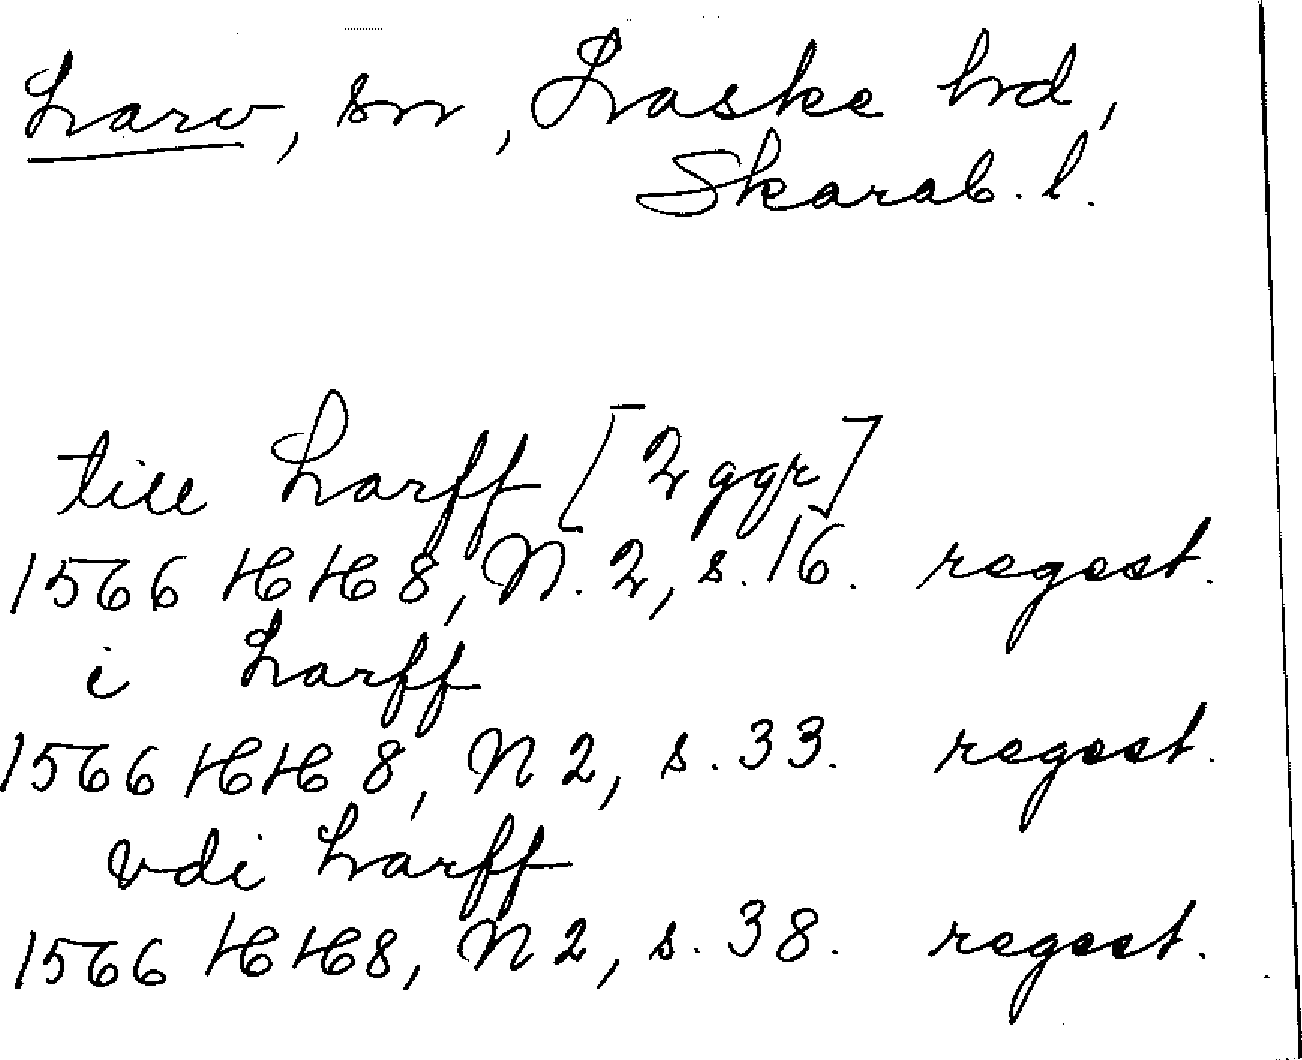 Larv, sn, Laske hd,
Skarab. l.
till Larff [2 ggr]
1566 HH 8, N. 2, s. 16. regest.
i Larff
1566 HH 8, N 2, s. 33. regest.
vdi Larff
1566 HH8, N 2, s. 38. regest.